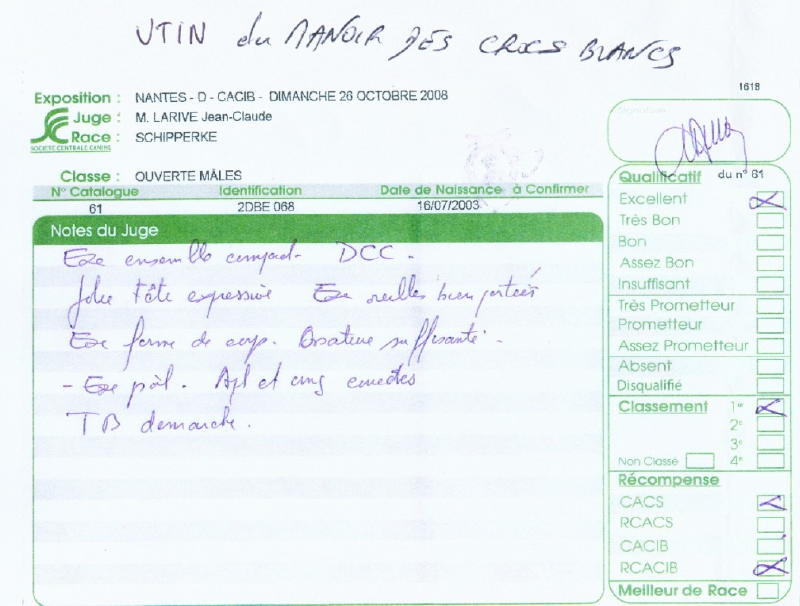 UTIN du MANOIR DES CROCS BLANCS
1618
Exposition : NANTES - D - CACIB - DIMANCHE 26 OCTOBRE 2008
Juge : M. LARIVE Jean-Claude
Race : SCHIPPERKE
SOCIETE CENTRALE CANINE
Classe : OUVERTE MÂLES
N° Catalogue Identification Date de Naissance à Confirmer
61 2DBE 068 16/07/2003
Notes du Juge
Exe ensemble compact. DCC.
Jolie tête expressive Exe oreilles bien portées
Exe forme de corps. Ossature suffisante.
- Exe poil. Apl et ang correctes
TB démarche.
Qualificatif du n° 61
Excellent
Très Bon
Bon
Assez Bon
Insuffisant
Très Prometteur
Prometteur
Assez Prometteur
Absent
Disqualifié
Classement 1er
2e
3e
Non Classé 4e
Récompense
CACS
RCACS
CACIB
RCACIB
Meilleur de Race